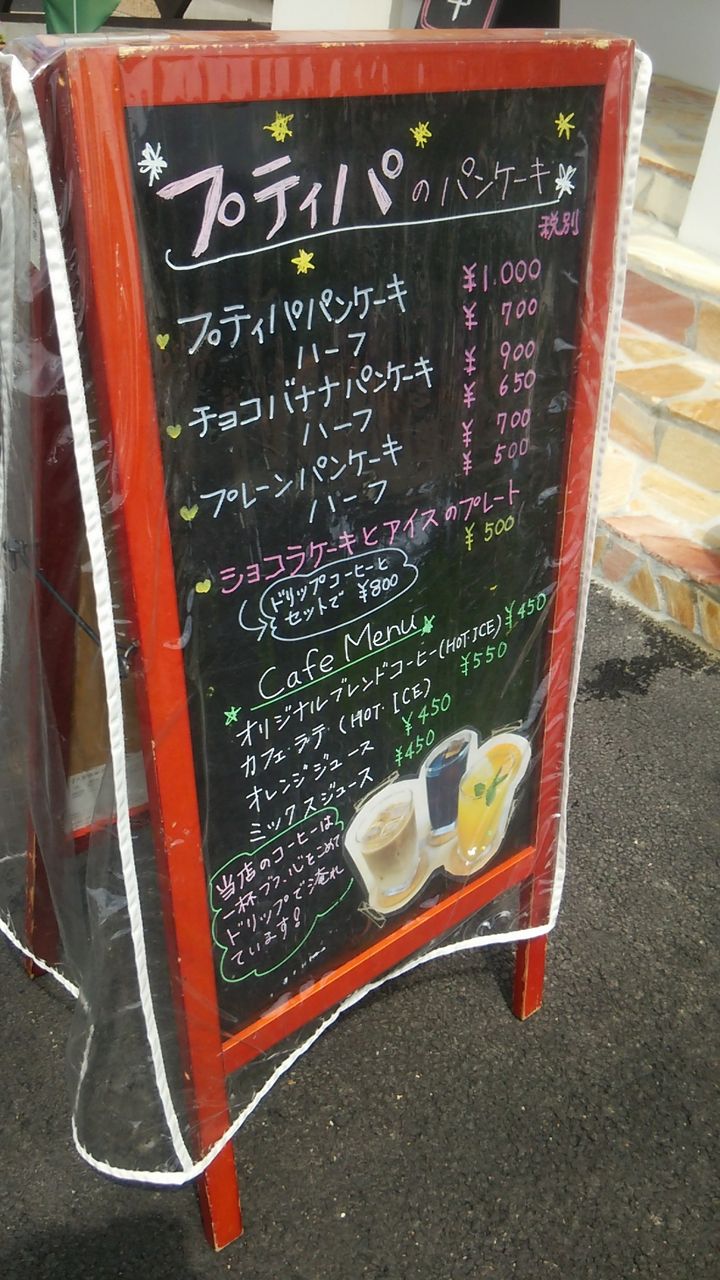 プティパのパンケーキ
税別
プティパパンケーキ ¥1,000
ハーフ ¥700
チョコバナナパンケーキ ¥900
ハーフ ¥650
プレーンパンケーキ ¥700
ハーフ ¥500
ショコラケーキとアイスのプレート
¥500
ドリップコーヒーと
セットで ¥800
Cafe Menu
オリジナルブレンドコーヒー(HOT・ICE) ¥450
カフェ・ラテ (HOT・ICE) ¥550
オレンジジュース ¥450
ミックスジュース ¥450
当店のコーヒーは
一杯づつ、心をこめて
ドリップで淹れ
ています!